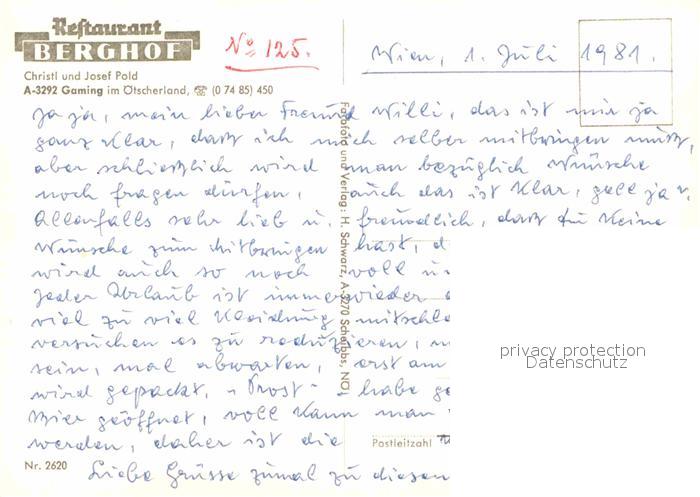 Restaurant
BERGHOF
Christl und Josef Pold
A-3292 Gaming im Ötscherland, ☏ (0 74 85) 450
Nº 125.
Wien, 1. Juli 1981.
ja ja, mein lieber Freund Willi, das ist mir ja
ganz klar, daß ich mich selber mitbringen muß,
aber schließlich wird man bezüglich Wünsche
noch fragen dürfen, auch das ist klar, gell ja?
Allenfalls sehr lieb u. freundlich, daß Du keine
Wünsche zum Mitbringen hast, d
wird auch so noch voll u
jeder Urlaub ist immer wieder
viel zu viel Kleidung mitschle
versuchen es zu reduzieren,
sein, mal abwarten, erst am
wird gepackt, - Prost - habe ge
Bier geöffnet, voll kann man
werden, daher ist die
Liebe Grüsse zumal zu diesen
Fotofold und Verlag: H. Schwarz, A-3270 Scheibbs, NÖ
Postleitzahl
Nr. 2620
privacy protection
Datenschutz